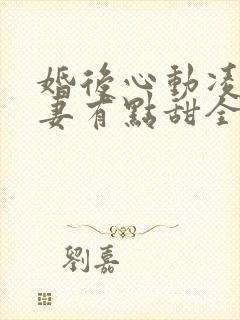 婚後心動凌
妻有點甜全
劉嘉